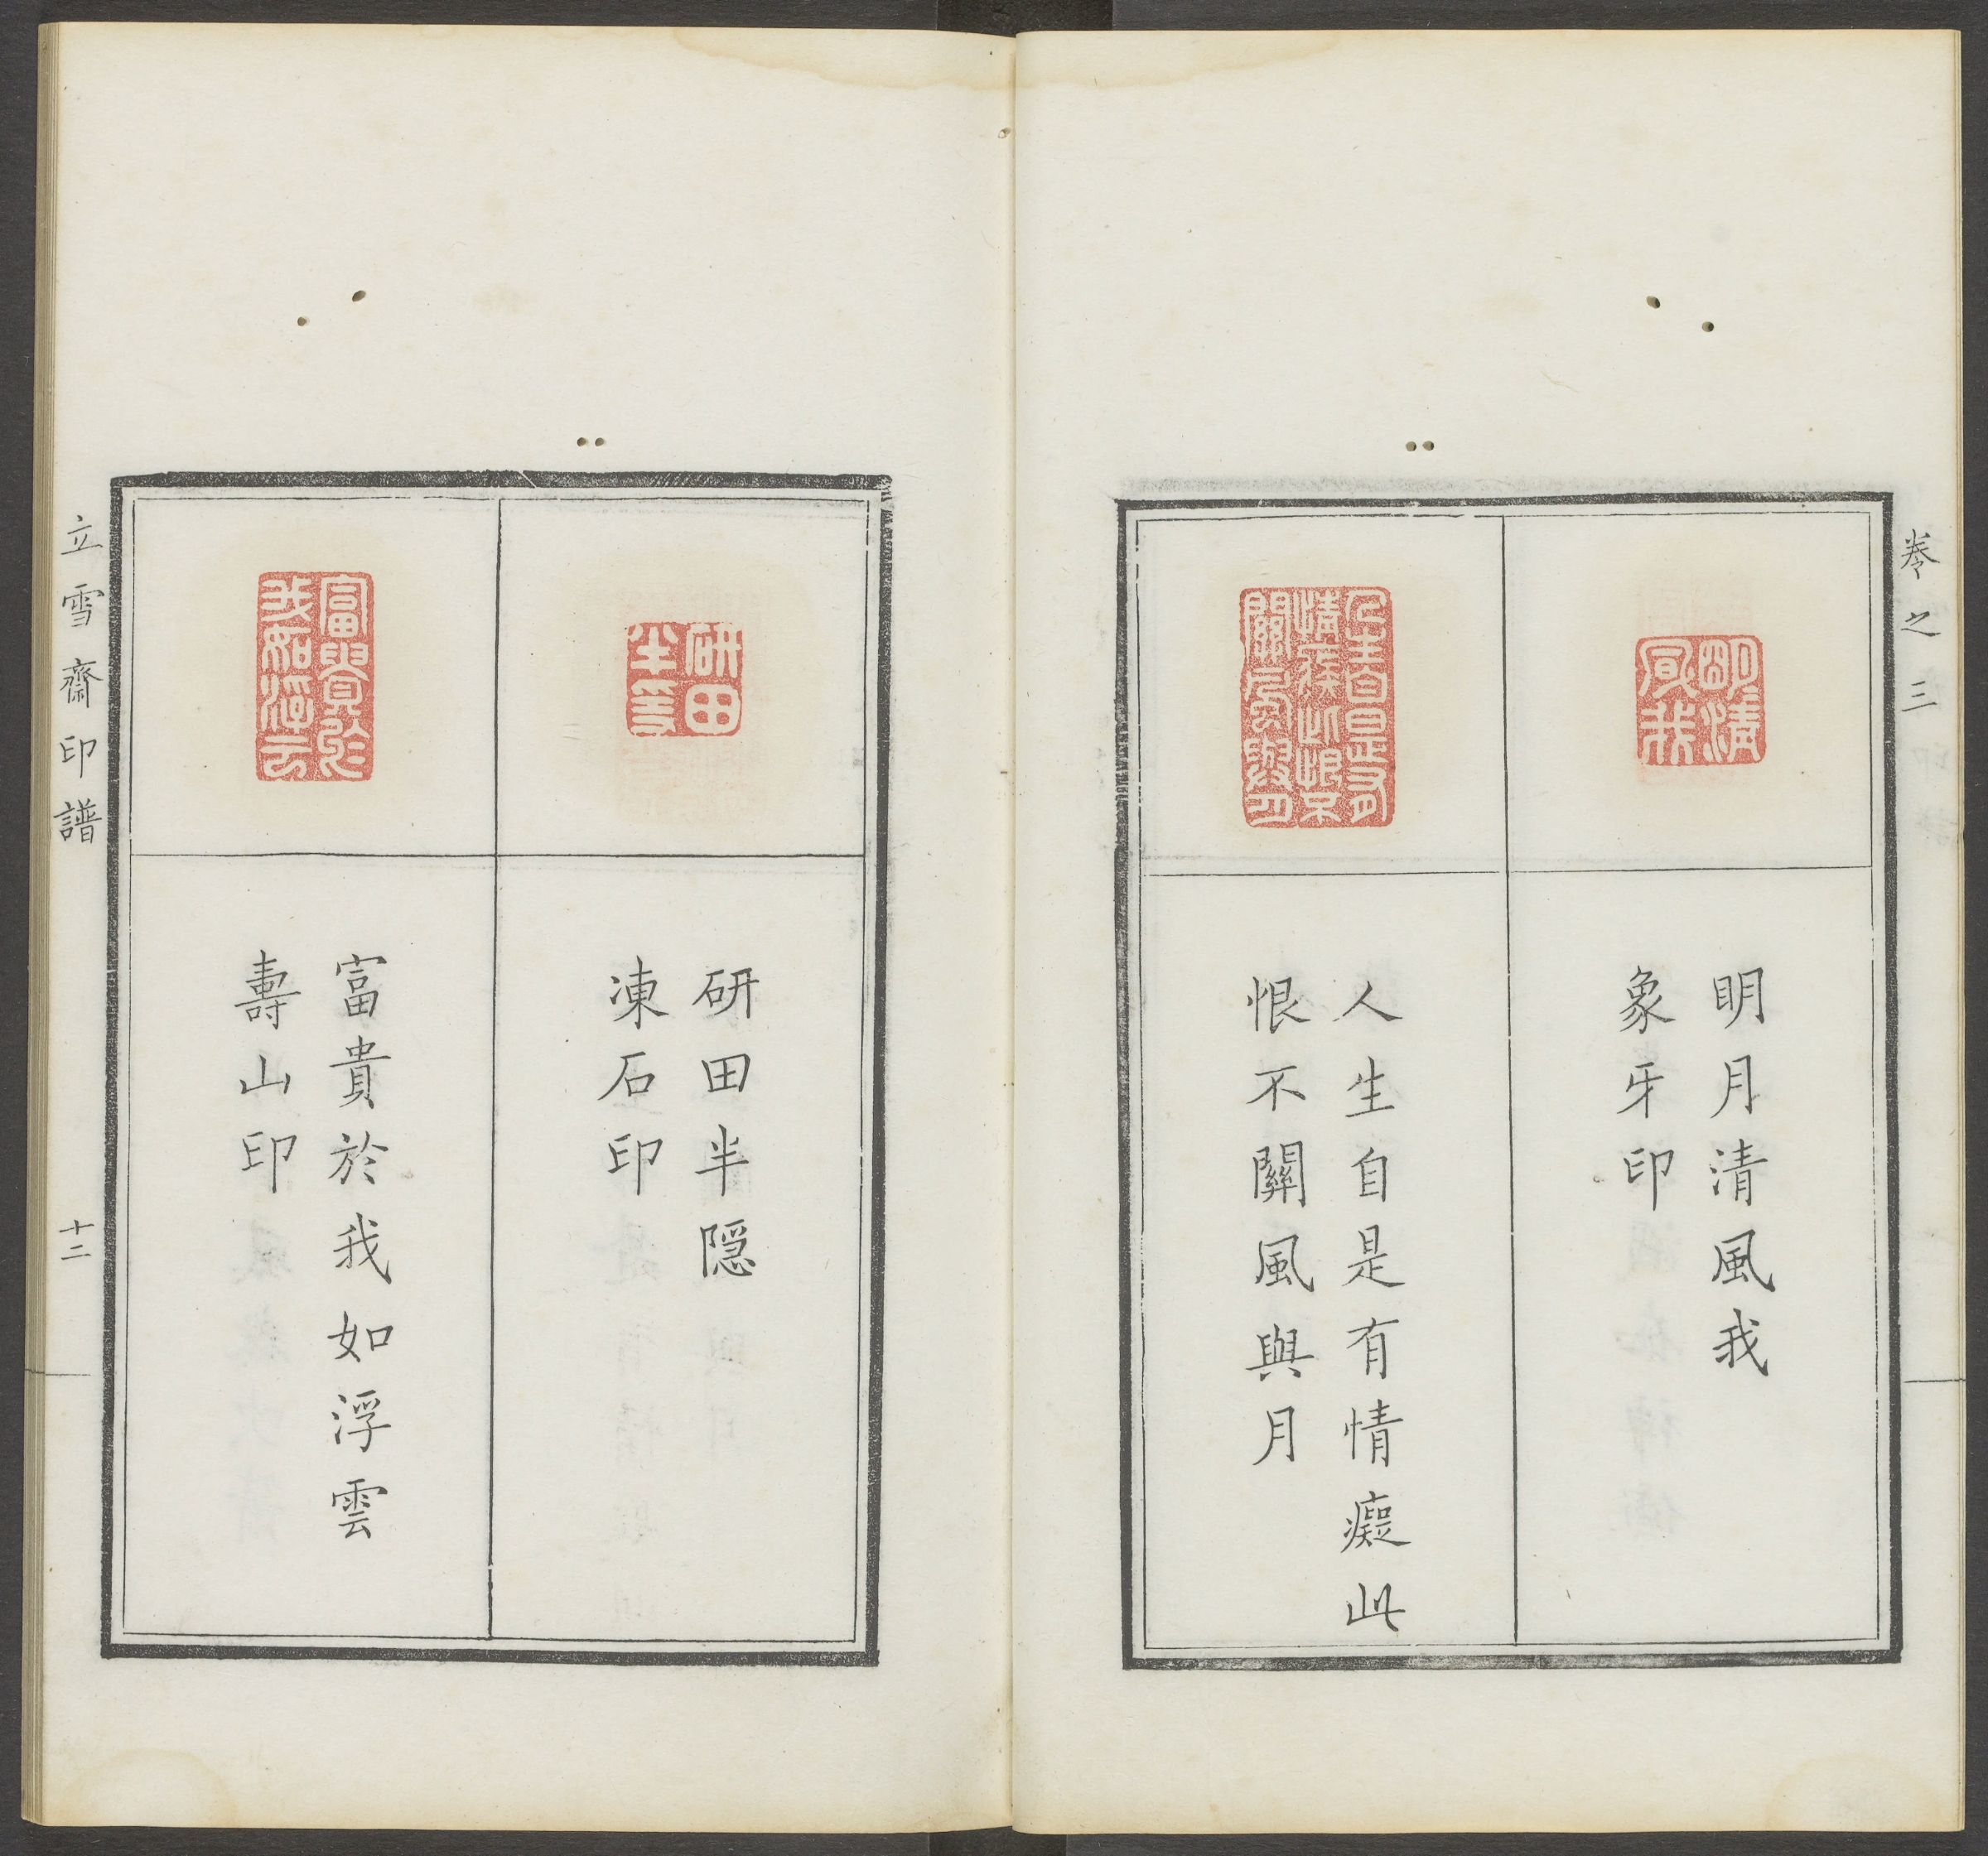 卷之三
明月清風我
象牙印
人生自是有情癡此
恨不關風與月
研田半隱
凍石印
富貴於我如浮雲
壽山印
立雪齋印譜
十二